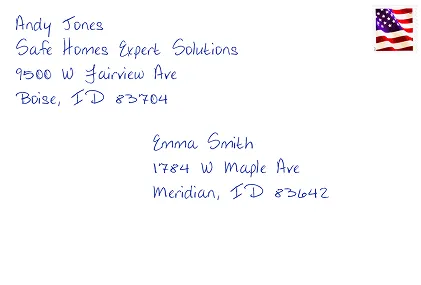 Andy Jones
Safe Homes Expert Solutions
9500 W Fairview Ave
Boise, ID 83704
Emma Smith
1784 W Maple Ave
Meridian, ID 83642